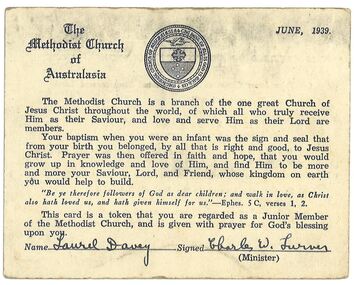 The
Methodist Church
of
Australasia
JUNE, 1939.
The Methodist Church is a branch of the one great Church of
Jesus Christ throughout the world, of which all who truly receive
Him as their Saviour, and love and serve Him as their Lord are
members.
Your baptism when you were an infant was the sign and seal that
from your birth you belonged, by all that is right and good, to Jesus
Christ. Prayer was then offered in faith and hope, that you would
grow up in knowledge and love of Him, and find Him to be more
and more your Saviour, Lord, and Friend, whose kingdom on earth
you would help to build.
"Be ye therefore followers of God as dear children; and walk in love, as Christ
also hath loved us, and hath given himself for us."—Ephes. 5 C, verses 1, 2.
This card is a token that you are regarded as a Junior Member
of the Methodist Church, and is given with prayer for God's blessing
upon you.
Name Laurel Davey Signed Charles W. Turner
(Minister)